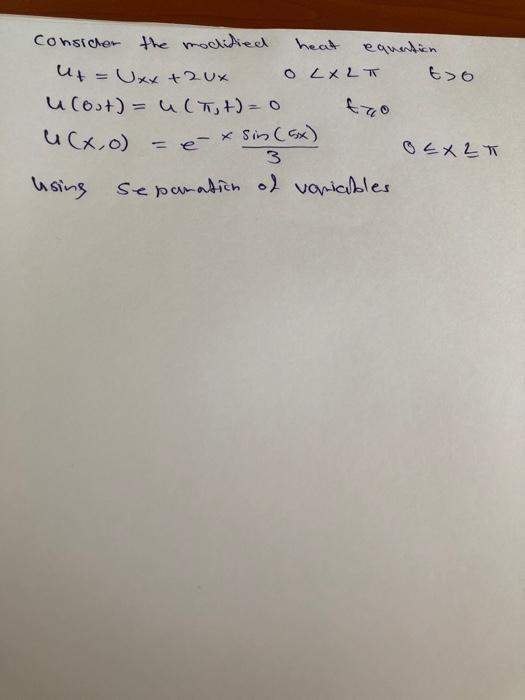 Consider the modified heat equation
Ut = Uxx + 2Ux 0 < x < π t > 0
u(0,t) = u(π,t) = 0 t ≥ 0
u(x,0) = e^-x sin(5x)/3 0 ≤ x ≤ π
Using separation of variables